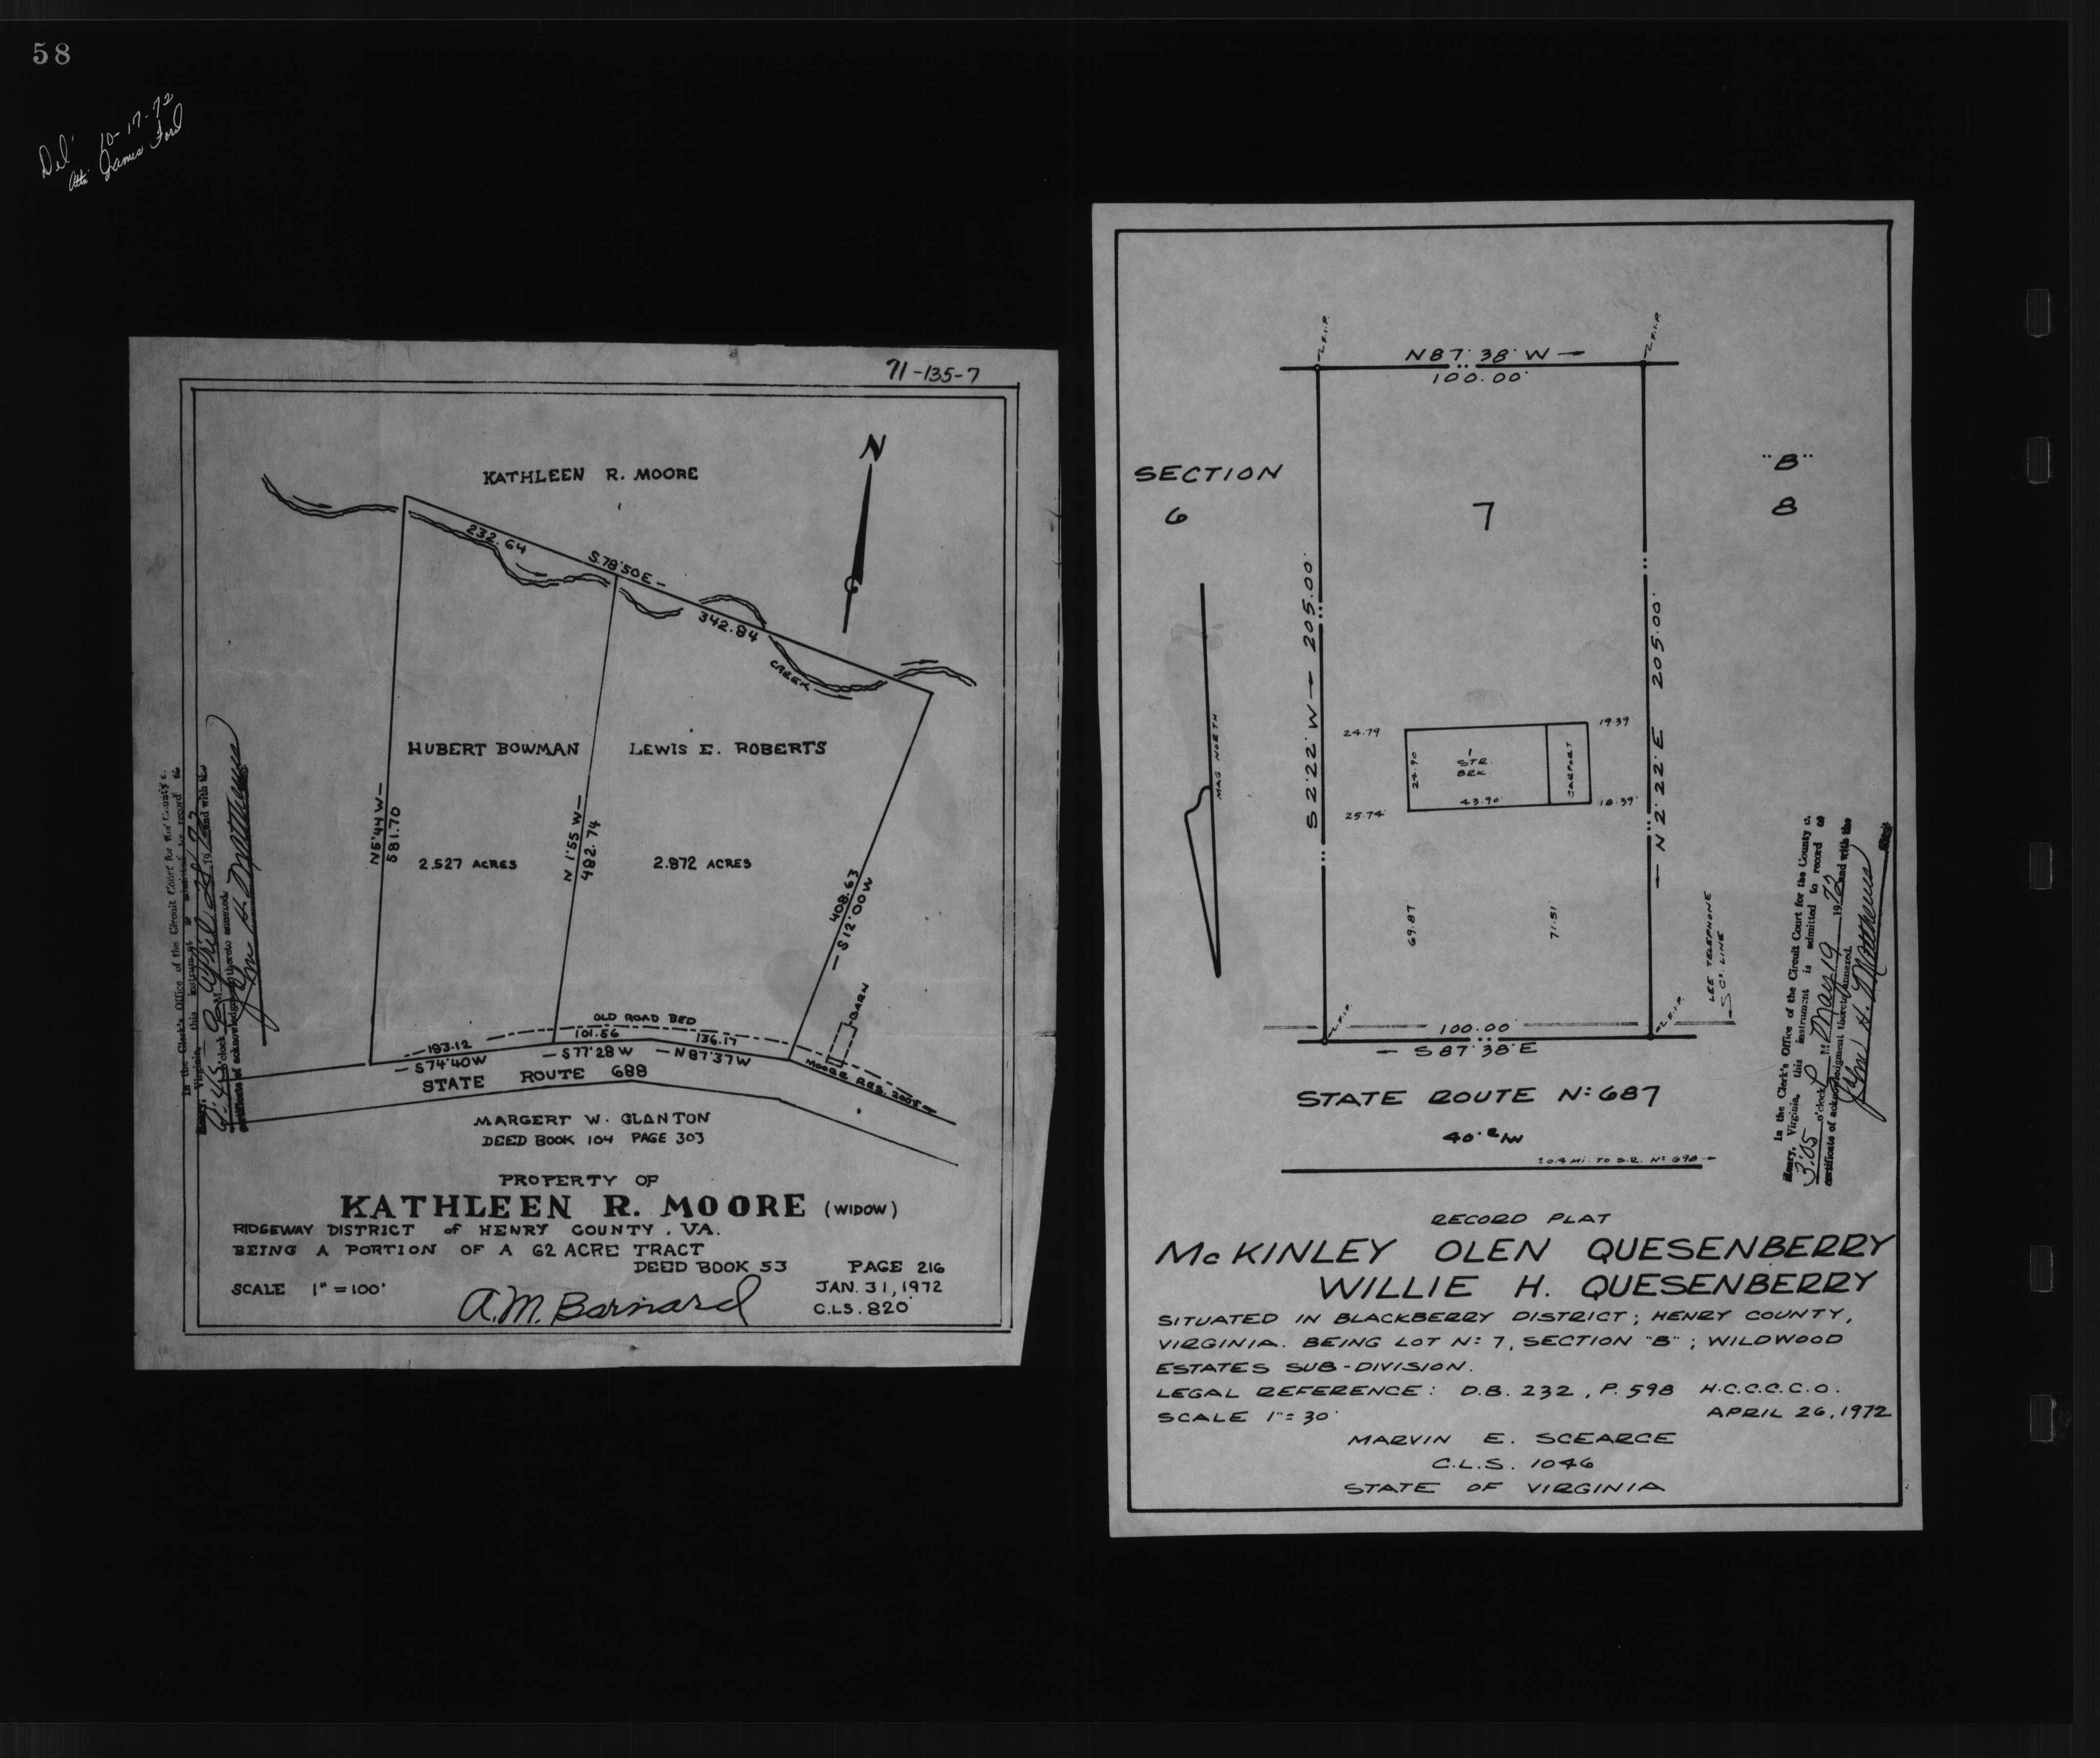 58
Del' 10-17-72
Att: James Ford
71-135-7
N
KATHLEEN R. MOORE
232.64
S.78°50'E-
342.84
CREEK
HUBERT BOWMAN
LEWIS E. ROBERTS
N5°44'W-
581.70
2.527 ACRES
N 1°55'W-
482.74
2.872 ACRES
408.63
-S12°00'W
BARN
OLD ROAD BED
193.12
101.56
136.17
-S74°40'W
-S77°28'W
-N87°37'W
STATE ROUTE 688
MOORE RES.
MARGERT W. GLANTON
DEED BOOK 104 PAGE 303
PROPERTY OF
KATHLEEN R. MOORE (WIDOW)
RIDGEWAY DISTRICT of HENRY COUNTY, VA.
BEING A PORTION OF A 62 ACRE TRACT
DEED BOOK 53 PAGE 216
SCALE 1" = 100'
JAN. 31, 1972
A.M. Barnard
C.L.S. 820
In the Clerk's Office of the Circuit Court for the County of
Henry, Virginia, this instrument is admitted to record at
o'clock P M April 19 72 and with the
certificate of acknowledgment thereto annexed.
Jno H. Matthews
N87°38'W-
100.00'
SECTION
"B"
6
7
8
S 2°22'W- 205.00'
-N 2°22'E 205.00'
MAG NORTH
24.79
19.39
24.90'
1
STR.
BRK.
CARPORT
43.90'
25.74'
18.39'
69.87
71.51'
LEE TELEPHONE
CO'S. LINE
100.00'
-S87°38'E
STATE ROUTE Nº 687
40' R/W
±0.4 MI. TO S.R. Nº 698
RECORD PLAT
McKINLEY OLEN QUESENBERRY
WILLIE H. QUESENBERRY
SITUATED IN BLACKBERRY DISTRICT; HENRY COUNTY,
VIRGINIA. BEING LOT Nº 7, SECTION "B"; WILDWOOD
ESTATES SUB-DIVISION.
LEGAL REFERENCE: D.B. 232, P. 598 H.C.C.C.C.O.
SCALE 1"=30'
APRIL 26, 1972
MARVIN E. SCEARCE
C.L.S. 1046
STATE OF VIRGINIA
In the Clerk's Office of the Circuit Court for the County of
Henry, Virginia, this instrument is admitted to record at
3:05 o'clock P M May 19 1972 and with the
certificate of acknowledgment thereto annexed.
Jno H. Matthews Clerk